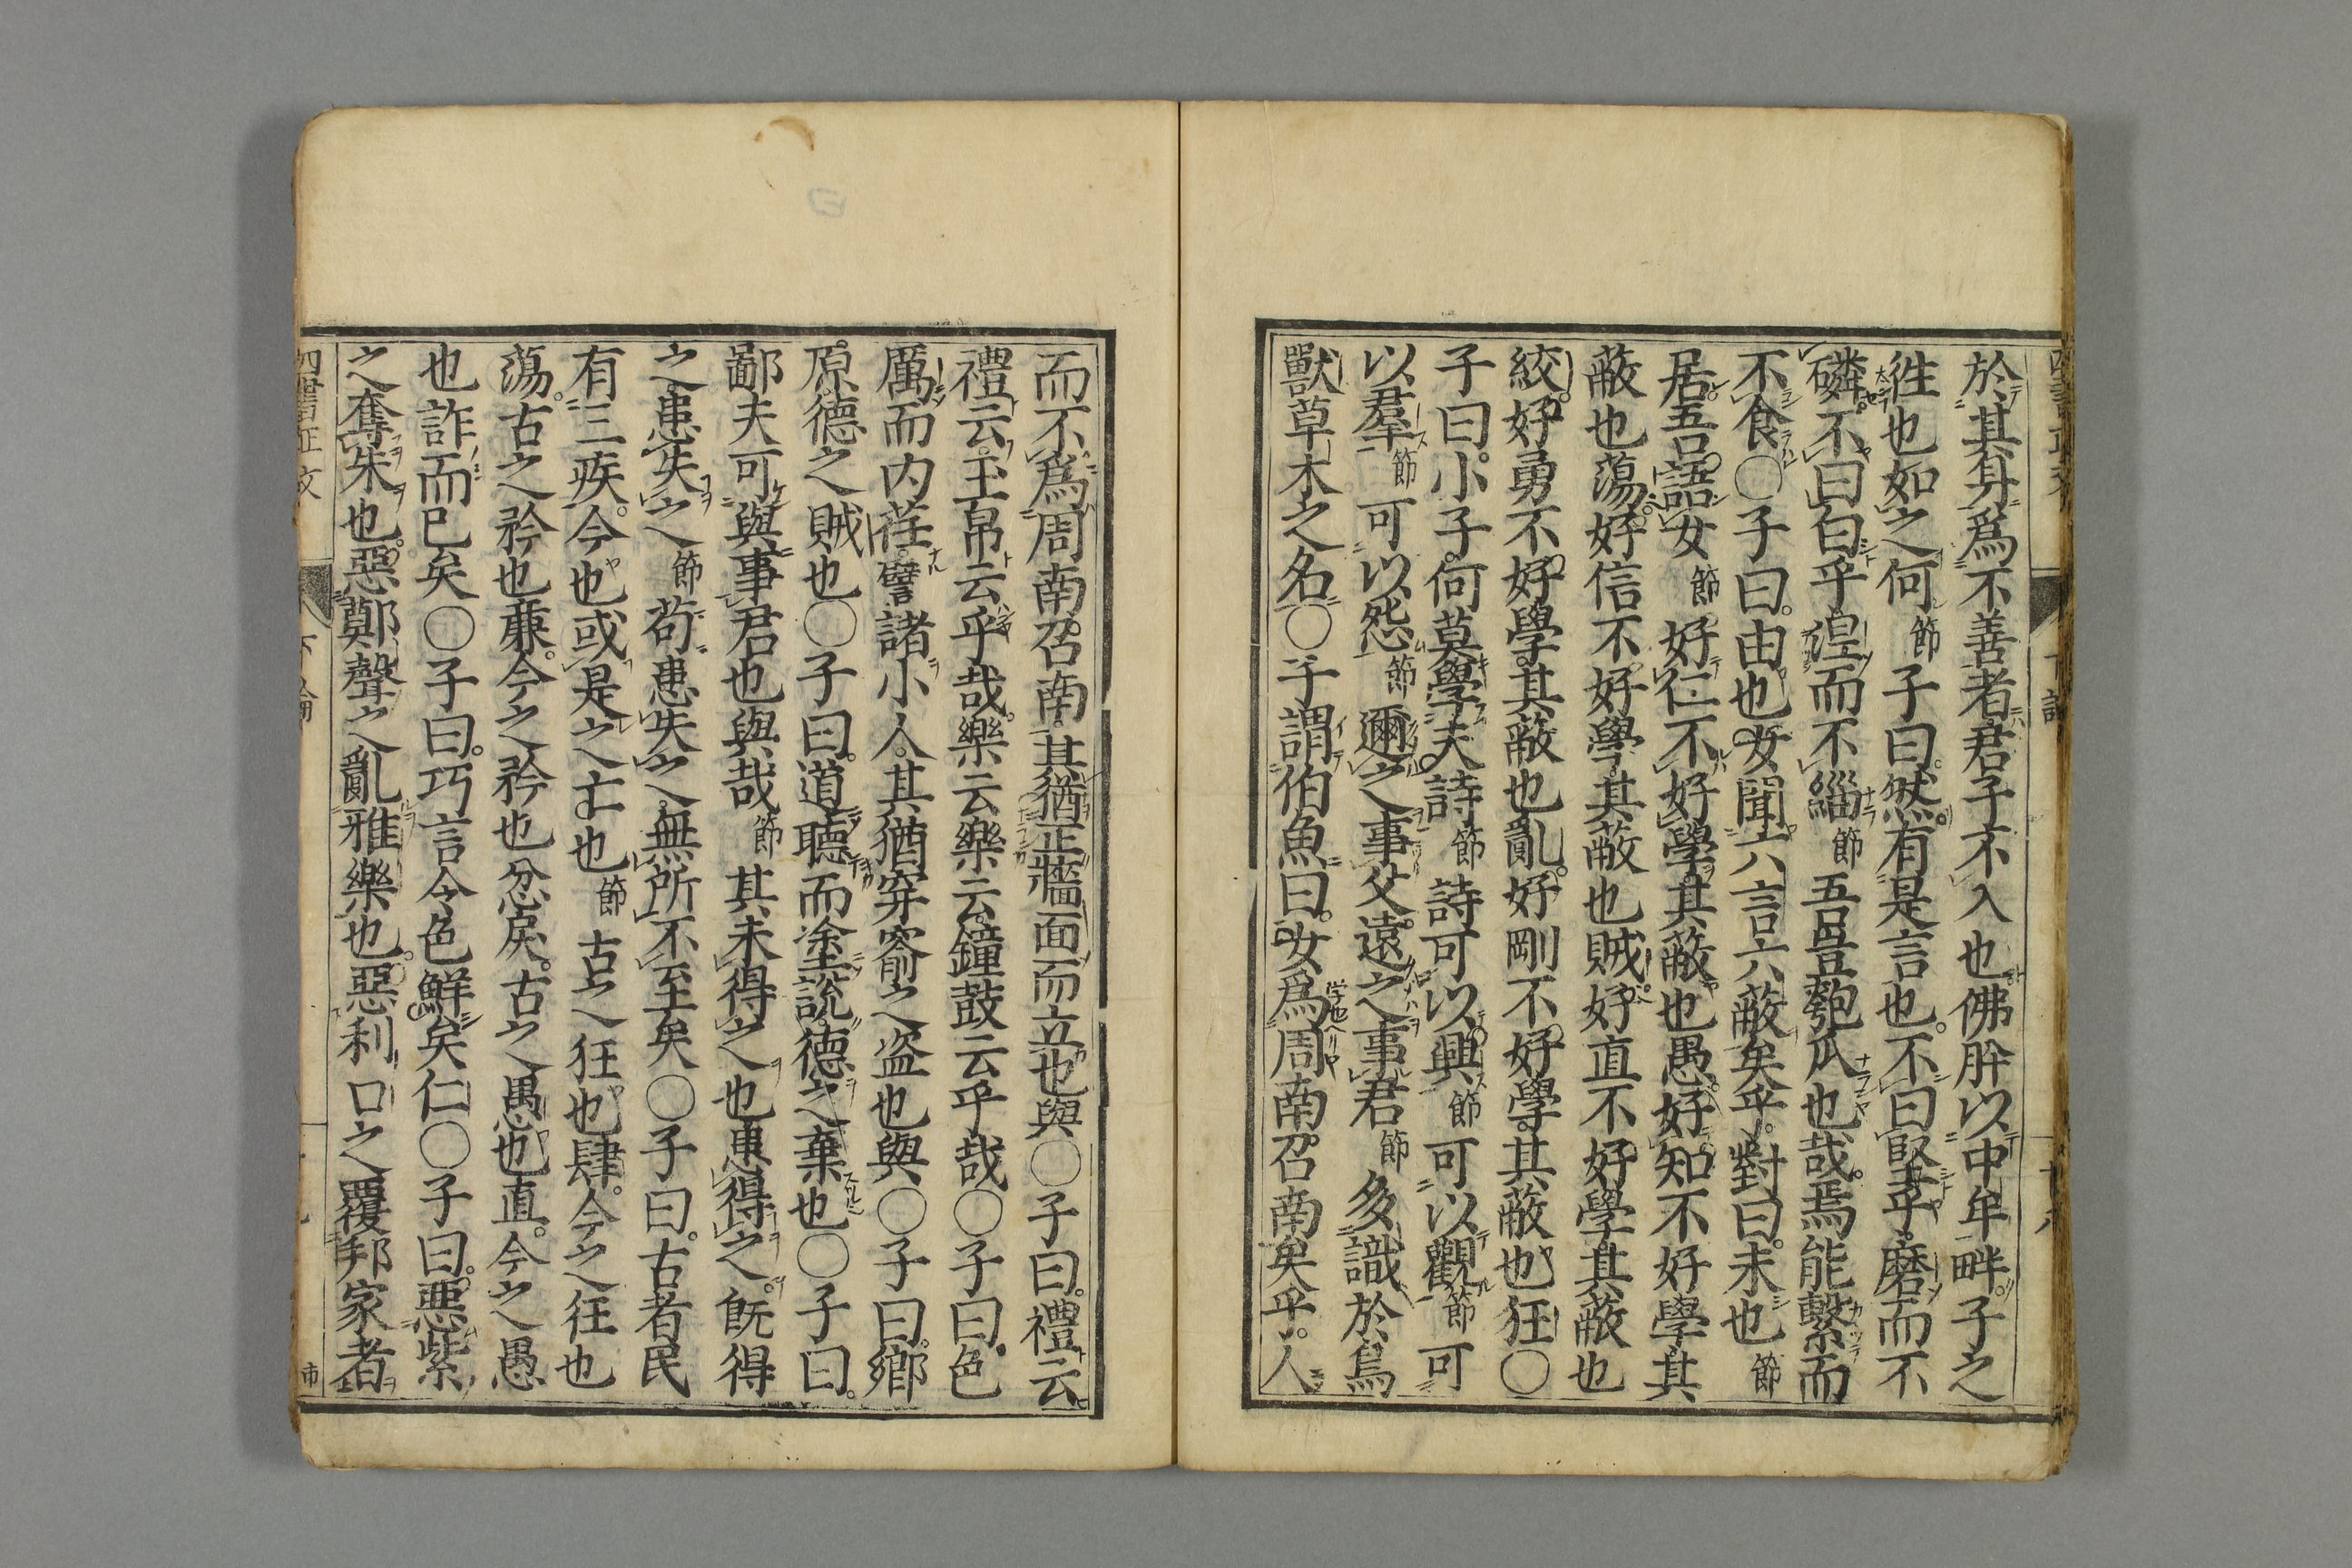 於其身爲不善者君子不入也佛肸以中牟畔子之
徃也如之何節子曰然有是言也不曰堅乎磨而不
磷不曰白乎涅而不緇節吾豈匏瓜也哉焉能繫而
不食○子曰由也女聞六言六蔽矣乎對曰未也節
居吾語女節好仁不好學其蔽也愚好知不好學其
蔽也蕩好信不好學其蔽也賊好直不好學其蔽也
絞好勇不好學其蔽也亂好剛不好學其蔽也狂○
子曰小子何莫學夫詩節詩可以興節可以觀節可
以羣節可以怨節邇之事父遠之事君節多識於鳥
獸草木之名○子謂伯魚曰女爲周南召南矣乎人
而不爲周南召南其猶正牆面而立也與○子曰禮云
禮云玉帛云乎哉樂云樂云鐘鼓云乎哉○子曰色
厲而内荏譬諸小人其猶穿窬之盗也與○子曰鄉
原德之賊也○子曰道聽而塗說德之棄也○子曰
鄙夫可與事君也與哉節其未得之也患得之既得
之患失之節苟患失之無所不至矣○子曰古者民
有三疾今也或是之亡也節古之狂也肆今之狂也
蕩古之矜也廉今之矜也忿戾古之愚也直今之愚
也詐而已矣○子曰巧言令色鮮矣仁○子曰惡紫
之奪朱也惡鄭聲之亂雅樂也惡利口之覆邦家者
四書正文